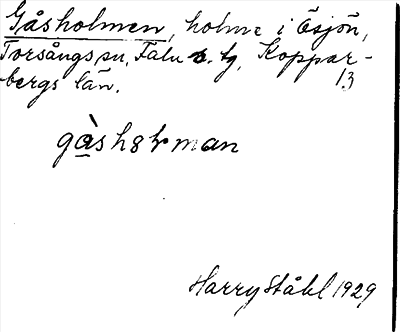 Gåsholmen, holme i Ösjön,
Torsångs sn, Falu s. tg, Koppar-
bergs län. 13
gàsholman
Harry Ståhl 1929